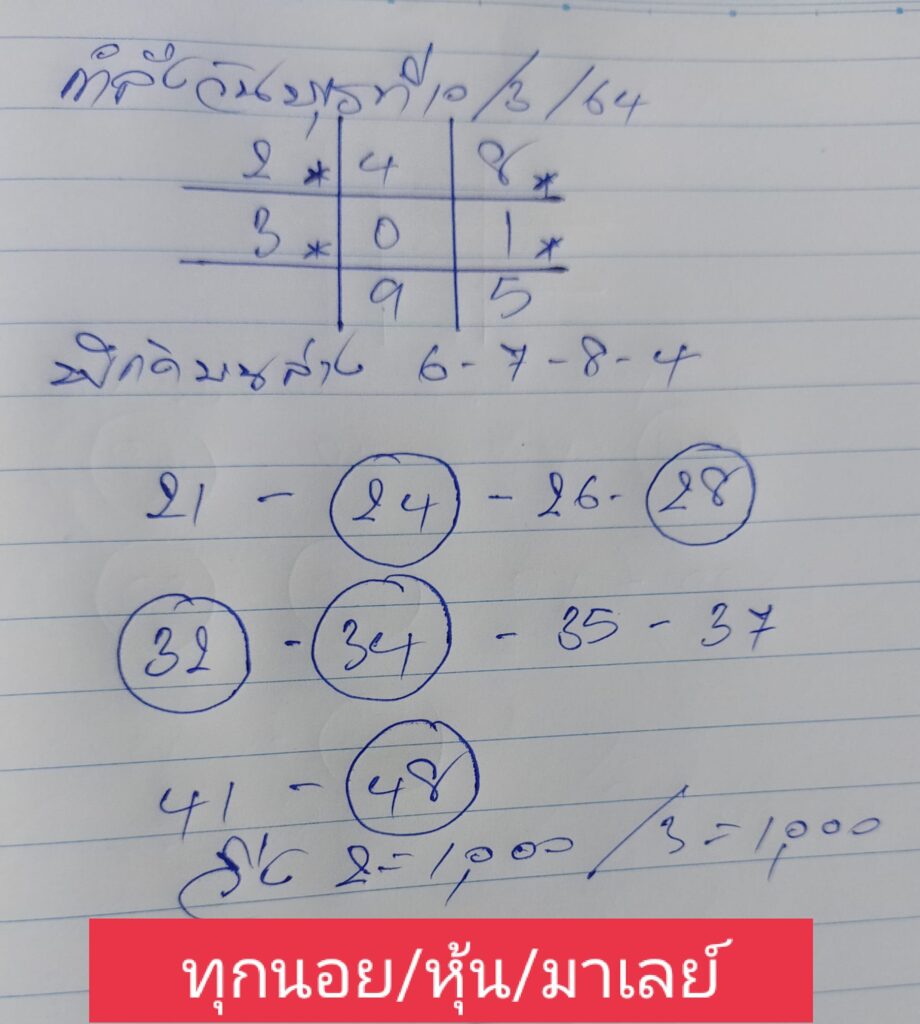 กำลังวันพุธที่ 10/3/64
2 * 4 8 *
3 * 0 1 *
9 5
ปักดิบนล่าง 6-7-8-4
21 - 24 - 26 - 28
32 - 34 - 35 - 37
41 - 48
วิ่ง 2 = 1,000 / 3 = 1,000
ทุกนอย/หุ้น/มาเลย์